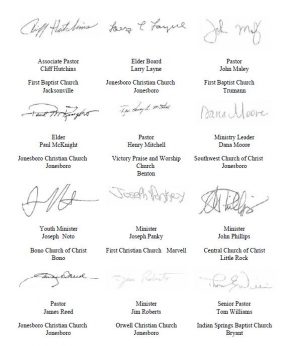 Cliff Hutchins Larry E Layne John Maley
Associate Pastor Elder Board Pastor
Cliff Hutchins Larry Layne John Maley
First Baptist Church Jonesboro Christian Church First Baptist Church
Jacksonville Jonesboro Trumann
Paul McKnight Dana Moore
Elder Pastor Ministry Leader
Paul McKnight Henry Mitchell Dana Moore
Jonesboro Christian Church Victory Praise and Worship Southwest Church of Christ
Jonesboro Church Jonesboro
Benton
Joseph Panky John Phillips
Youth Minister Minister Minister
Joseph Noto Joseph Panky John Phillips
Bono Church of Christ First Christian Church Marvell Central Church of Christ
Bono Little Rock
James Reed Jim Roberts
Pastor Minister Senior Pastor
James Reed Jim Roberts Tom Williams
Jonesboro Christian Church Orwell Christian Church Indian Springs Baptist Church
Jonesboro Jonesboro Bryant